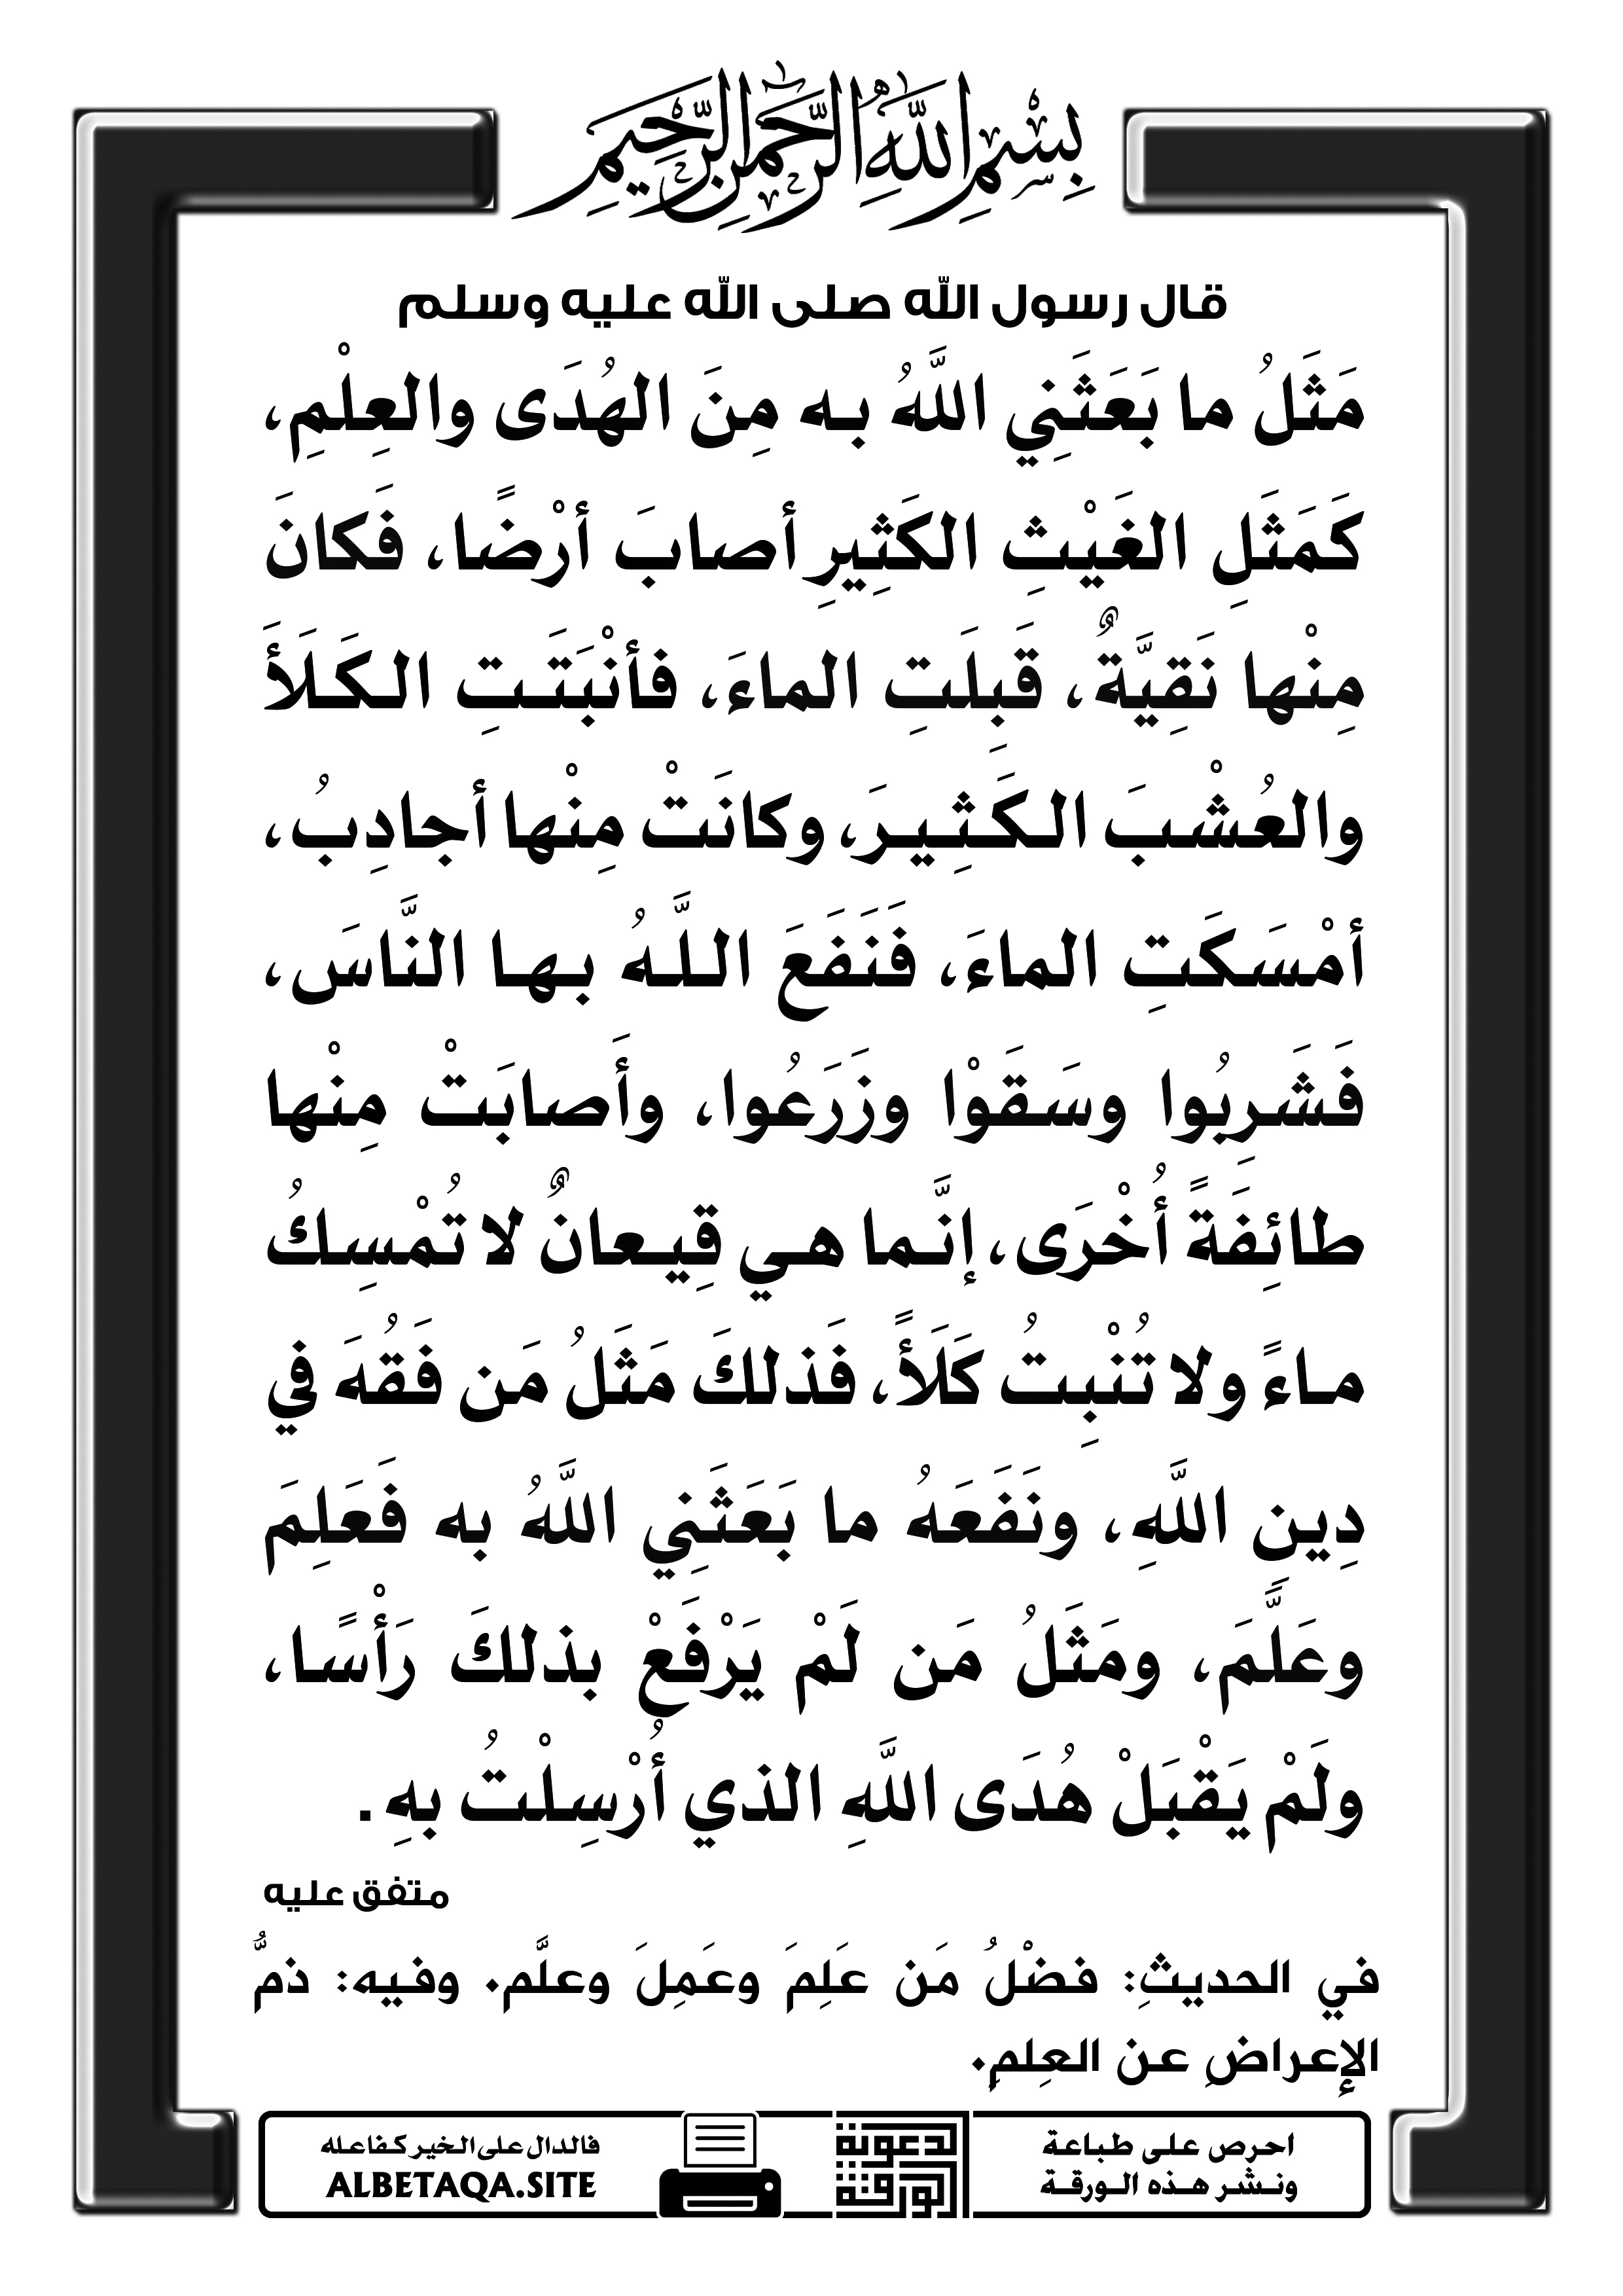 بِسْمِ اللَّهِ الرَّحْمٰنِ الرَّحِيمِ
قال رسول الله صلى الله عليه وسلم
مَثَلُ ما بَعَثَنِي اللَّهُ به مِنَ الهُدَى والعِلْمِ،
كَمَثَلِ الغَيْثِ الكَثِيرِ أصابَ أرْضًا، فَكانَ
مِنْها نَقِيَّةٌ، قَبِلَتِ الماءَ، فأنْبَتَتِ الكَلَأَ
والعُشْبَ الكَثِيرَ، وكانَتْ مِنْها أجادِبُ،
أمْسَكَتِ الماءَ، فَنَفَعَ اللَّهُ بها النَّاسَ،
فَشَرِبُوا وسَقَوْا وزَرَعُوا، وأَصابَتْ مِنْها
طائِفَةً أُخْرَى، إنَّما هي قِيعانٌ لا تُمْسِكُ
ماءً ولا تُنْبِتُ كَلَأً، فَذلكَ مَثَلُ مَن فَقُهَ في
دِينِ اللَّهِ، ونَفَعَهُ ما بَعَثَنِي اللَّهُ به فَعَلِمَ
وعَلَّمَ، ومَثَلُ مَن لَمْ يَرْفَعْ بذلكَ رَأْسًا،
ولَمْ يَقْبَلْ هُدَى اللَّهِ الذي أُرْسِلْتُ بهِ.
متفق عليه
في الحديثِ: فضْلُ مَن عَلِمَ وعَمِلَ وعلَّم. وفيه: ذمُّ
الإعراضِ عن العِلمِ.
احرص على طباعة
ونشر هذه الورقة
الورقة
الدعوية
فالدال على الخير كفاعله
ALBETAQA.SITE